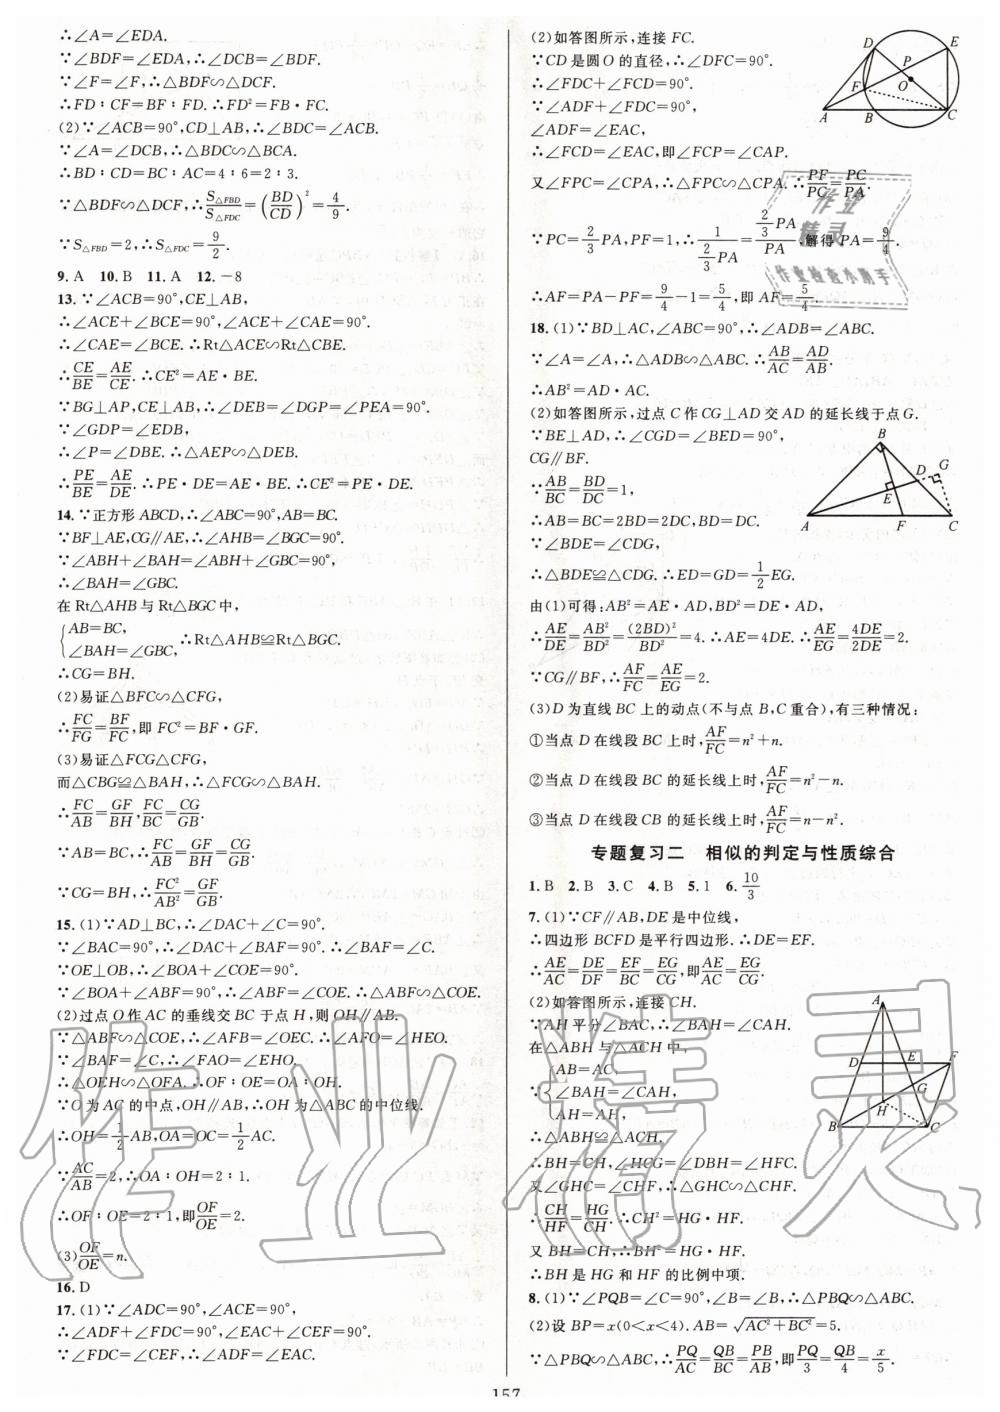 ∴∠A=∠EDA.
∵∠BDF=∠EDA,∴∠DCB=∠BDF.
∵∠F=∠F,∴△BDF∽△DCF.
∴FD∶CF=BF∶FD.∴FD²=FB·FC.
(2)∵∠ACB=90°,CD⊥AB,∴∠BDC=∠ACB.
∵∠A=∠DCB,∴△BDC∽△BCA.
∴BD∶CD=BC∶AC=4∶6=2∶3.
∵△BDF∽△DCF,∴S△FBD/S△FDC=(BD/CD)²=4/9.
∵S△FBD=2,∴S△FDC=9/2.
9. A 10. B 11. A 12. -8
13. ∵∠ACB=90°,CE⊥AB,
∴∠ACE+∠BCE=90°,∠ACE+∠CAE=90°.
∴∠CAE=∠BCE.∴Rt△ACE∽Rt△CBE.
∴CE/BE=AE/CE.∴CE²=AE·BE.
∵BG⊥AP,CE⊥AB,∴∠DEB=∠DGP=∠PEA=90°.
∵∠GDP=∠EDB,
∴∠P=∠DBE.∴△AEP∽△DEB.
∴PE/BE=AE/DE.∴PE·DE=AE·BE.∴CE²=PE·DE.
14. ∵正方形ABCD,∴∠ABC=90°,AB=BC.
∵BF⊥AE,CG∥AE,∴∠AHB=∠BGC=90°.
∵∠ABH+∠BAH=∠ABH+∠GBC=90°,
∴∠BAH=∠GBC.
在Rt△AHB与Rt△BGC中,
{AB=BC,
∠BAH=∠GBC, ∴Rt△AHB≌Rt△BGC.
∴CG=BH.
(2)易证△BFC∽△CFG,
∴FC/FG=BF/FC,即FC²=BF·GF.
(3)易证FCG△CFG,
而△CBG≌△BAH,∴△FCG∽△BAH.
∴FC/AB=GF/BH,FC/BC=CG/GB.
∵AB=BC,∴FC/AB=GF/BH=CG/GB.
∵CG=BH,∴FC²/AB²=GF/GB.
15. (1)∵AD⊥BC,∴∠DAC+∠C=90°.
∵∠BAC=90°,∴∠DAC+∠BAF=90°.∴∠BAF=∠C.
∵OE⊥OB,∴∠BOA+∠COE=90°.
∵∠BOA+∠ABF=90°,∴∠ABF=∠COE.∴△ABF∽△COE.
(2)过点O作AC的垂线交BC于点H,则OH∥AB.
∵△ABF∽△COE,∴∠AFB=∠OEC.∴∠AFO=∠HEO.
∵∠BAF=∠C,∴∠FAO=∠EHO.
∴△OEH∽△OFA.∴OF∶OE=OA∶OH.
∵O为AC的中点,OH∥AB,∴OH为△ABC的中位线.
∴OH=1/2AB,OA=OC=1/2AC.
∵AC/AB=2,∴OA∶OH=2∶1.
∴OF∶OE=2∶1,即OF/OE=2.
(3)OF/OE=n.
16. D
17. (1)∵∠ADC=90°,∠ACE=90°,
∴∠ADF+∠FDC=90°,∠EAC+∠CEF=90°.
∵∠FDC=∠CEF,∴∠ADF=∠EAC.
(2)如答图所示,连接FC.
∵CD是圆O的直径,∴∠DFC=90°.
∴∠FDC+∠FCD=90°.
∵∠ADF+∠FDC=90°,
∠ADF=∠EAC,
∴∠FCD=∠EAC,即∠FCP=∠CAP.
又∠FPC=∠CPA,∴△FPC∽△CPA.∴PF/PC=PC/PA.
∵PC=2/3PA,PF=1,∴1/(2/3PA)=(2/3PA)/PA.解得PA=9/4.
∴AF=PA-PF=9/4-1=5/4,即AF=5/4.
D E P F O A B C
18. (1)∵BD⊥AC,∠ABC=90°,∴∠ADB=∠ABC.
∵∠A=∠A,∴△ADB∽△ABC.∴AB/AC=AD/AB.
∴AB²=AD·AC.
(2)如答图所示,过点C作CG⊥AD交AD的延长线于点G.
∵BE⊥AD,∴∠CGD=∠BED=90°,
CG∥BF.
∴AB/BC=BD/DC=1,
∴AB=BC=2BD=2DC,BD=DC.
∵∠BDE=∠CDG,
∴△BDE≌△CDG.∴ED=GD=1/2EG.
B G D E A F C
由(1)可得:AB²=AE·AD,BD²=DE·AD,
∴AE/DE=AB²/BD²=(2BD)²/BD²=4.∴AE=4DE.∴AE/EG=4DE/2DE=2.
∵CG∥BF,∴AF/FC=AE/EG=2.
(3)D为直线BC上的动点(不与点B,C重合),有三种情况:
①当点D在线段BC上时,AF/FC=n²+n.
②当点D在线段BC的延长线上时,AF/FC=n²-n.
③当点D在线段CB的延长线上时,AF/FC=n-n².
专题复习二 相似的判定与性质综合
1. B 2. B 3. C 4. B 5. 1 6. 10/3
7. (1)∵CF∥AB,DE是中位线,
∴四边形BCFD是平行四边形.∴DE=EF.
∴AE/AC=DE/DF=EF/BC=EG/CG,即AE/AC=EG/CG.
(2)如答图所示,连接CH.
∵AH平分∠BAC,∴∠BAH=∠CAH.
在△ABH与△ACH中,
∵{AB=AC,
∠BAH=∠CAH,
AH=AH,
∴△ABH≌△ACH.
A D E F G H B C
∴BH=CH,∠HCG=∠DBH=∠HFC.
又∠GHC=∠CHF,∴△GHC∽△CHF.
∴CH/HF=HG/CH.∴CH²=HG·HF.
又BH=CH,∴BH²=HG·HF.
∴BH是HG和HF的比例中项.
8. (1)∵∠PQB=∠C=90°,∠B=∠B,∴△PBQ∽△ABC.
(2)设BP=x(0<x<4).AB=√(AC²+BC²)=5.
∵△PBQ∽△ABC,∴PQ/AC=QB/BC=PB/AB,即PQ/3=QB/4=x/5.
157
作业精灵
作业检查小助手
作业精灵